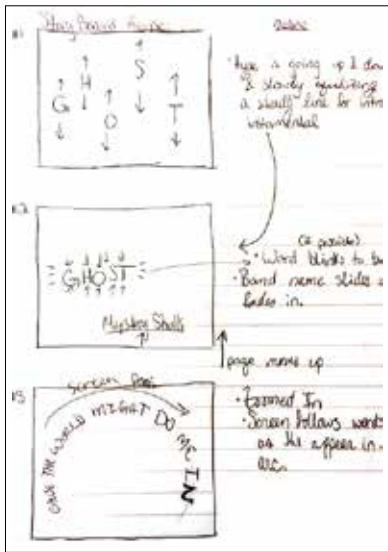 Story Board
#1
G H O S T
type is going up & down
& slowly equalizing
a steady line for intro
instrumental
#2
GHOST
Mystery Skulls
Word blinks to
Band name slides
fades in.
page moves up
#3
screen
ONCE THE WORLD MIGHT DO ME IN
Zoomed In
Screen follows words
as the appear in
arc.